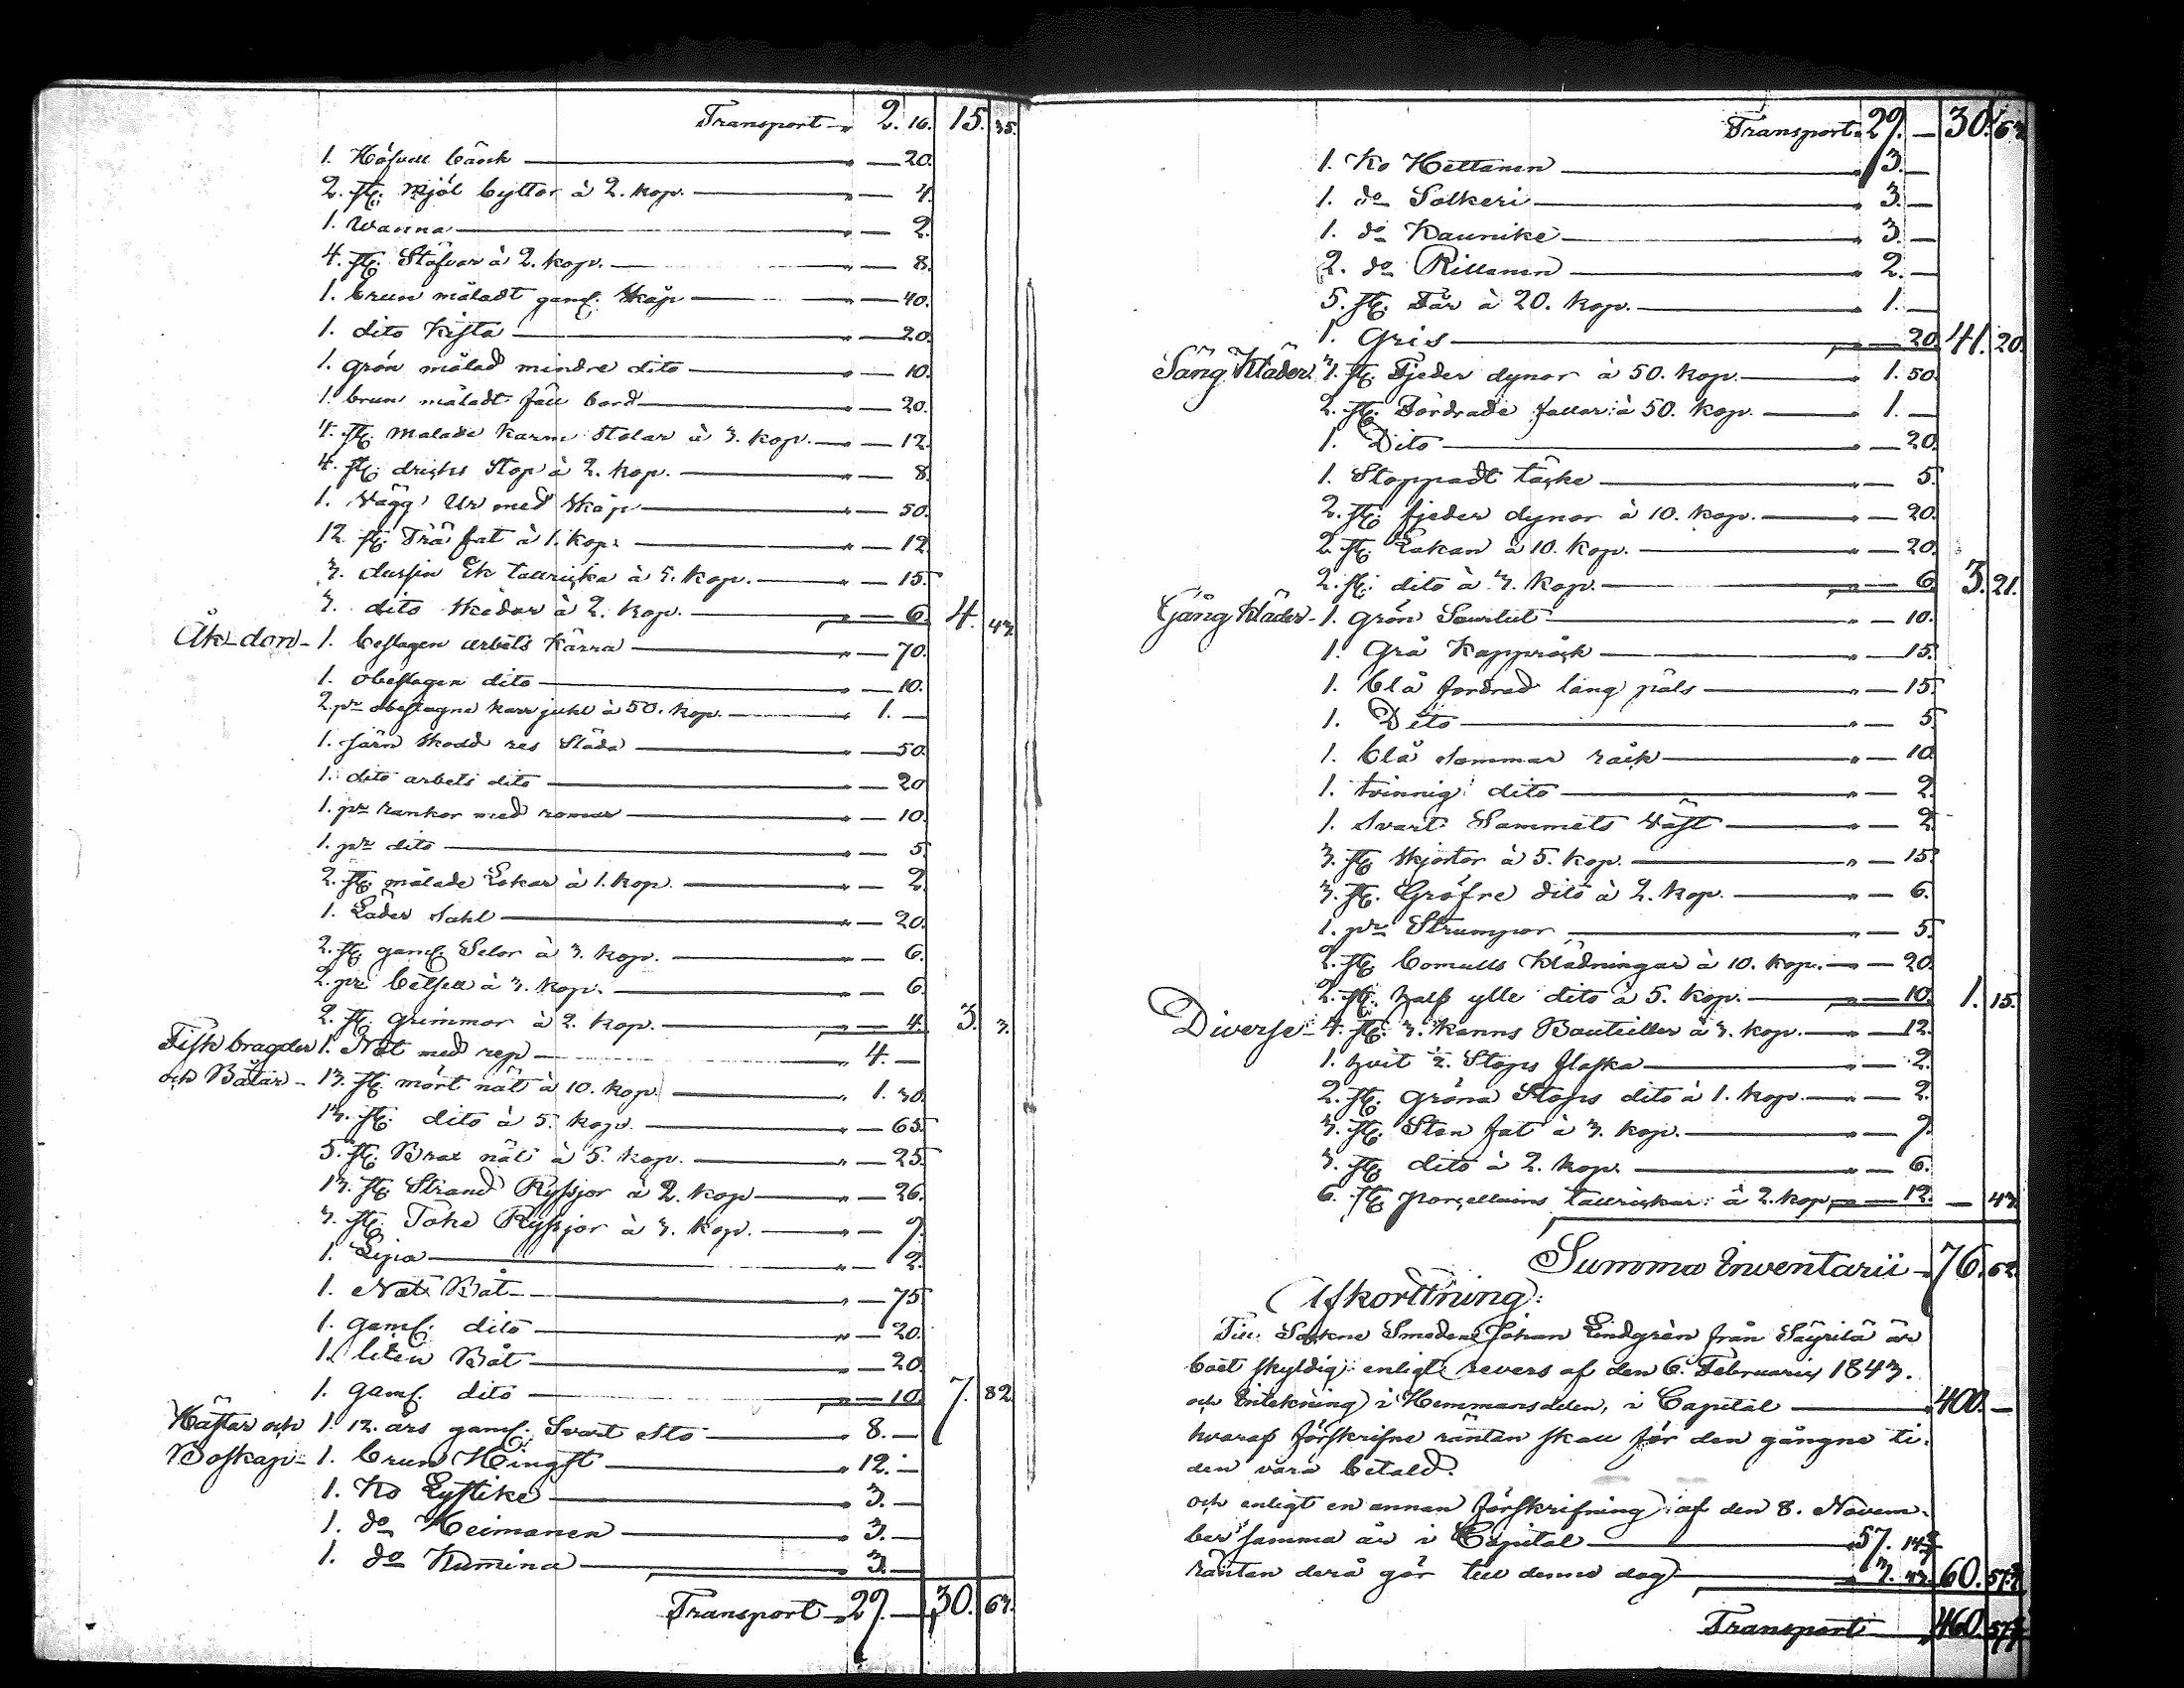 Transport 2. 16. 15. 35.
1. Höfvell bänk — 20.
2. st. Mjöl byttor à 2. kop. — 4.
1. Wanna — 2.
4. st. Stäfvar à 2. kop. — 8.
1. brun måladt gaml. Skåp — 40.
1. dito Kista — 20.
1. grön målad mindre dito — 10.
1. brun måladt fäll bord — 20.
4. st. målade karm stolar à 3. kop. — 12.
4. st. dricks Stop à 2. kop. — 8.
1. Vägg Ur med Skåp — 50.
12. st. Trä fat à 1. kop. — 12.
3. dussin Ek tallricka à 5. kop. — 15.
3. dito Skedar à 2. kop. — 6. 4. 43.
Åk-don - 1. beslagen arbets Kärra — 70.
1. obeslagen dito — 10.
2. pr obeslagne karr juhl à 50. kop. 1. —
1. järn skodd res Släda — 50.
1. dito arbets dito — 20
1. pr rankor med romar — 10.
1. pr dito — 5.
2. st. målade Lokar à 1. kop. — 2.
1. Läder Sahl — 20.
2. st. gaml. Selor à 3. kop. — 6.
2. pr betsell à 3. kop. — 6.
2. st. grimmor à 2. kop. — 4. 3. 3.
Fisk bragder 1. Not med rep 4. —
och Båtar - 13. st. mört nät à 10. kop. 1. 30.
13. st. dito à 5. kop. — 65.
5. st. Brax nät à 5. kop. — 25.
13. st. Strand Ryssjor à 2. kop — 26.
3. st. Toke Ryssjor à 3. kop. — 9.
1. Lipa — 2.
1. Not Båt — 75.
1. gaml. dito — 20.
1. liten Båt — 20.
1. gaml. dito — 10. 7. 82.
Hästar och 1. 12. års gaml. Svart Sto 8. —
Boskap - 1. brun Hingst 12. —
1. Ko Lystike 3. —
1. do Heimanen 3. —
1. do Kumina 3. —
Transport 29. — 30. 63.
Transport 29. — 30. 63.
1. Ko Hettanen 3. —
1. do Solkeri 3. —
1. do Kaunike 3. —
2. do Rillanen 2. —
5. st. Får à 20. kop. 1. —
1. Gris — 20. 41. 20.
Säng Kläder 3. st. Fjeder dynor à 50. kop. 1. 50.
2. st. Fördrade fällar à 50. kop. 1. —
1. Dito — 20.
1. Stoppadt täcke — 5.
2. st. fjeder dynor à 10. kop. — 20.
2. st. Lakan à 10. kop. — 20.
2. st. dito à 3. kop. — 6. 3. 21.
Gång Kläder - 1. grön Sourtut — 10.
1. Grå Kappråck — 15.
1. blå fordrad lång päls — 15.
1. Dito — 5.
1. blå Sommar råck — 10.
1. tvinnig dito — 2.
1. Svart Sammets Väst — 2.
3. st. Skjortor à 5. kop. — 15.
3. st. Gröfre dito à 2. kop. — 6.
1. pr Strumpor — 5.
2. st. bomulls Klädningar à 10. kop. — 20.
2. st. half ylle dito à 5. kop. — 10. 1. 15.
Diverse - 4. st. 3. kanns Bouteiller à 3. kop. — 12.
1. hvit 2. Stops flaska — 2.
2. st. gröna Stops dito à 1. kop. — 2.
3. st. Sten fat à 3. kop. — 9.
3. st. dito à 2. kop. — 6.
6. st. porcellains tallrickar à 2. kop. — 12. — 43.
Summa Inventarii - 76. 62.
Afkortning:
Till Sockne Smeden Johan Lindgrén från Säyrilä är
boet skyldig enligt revers af den 6. Februarii 1843.
och Inteckning i Hemmansdelen, i Capital 400. —
hvaraf förskrifne räntan skall för den gångne ti-
den vara betald.
och enligt en annan förskrifning af den 8. Novem-
ber samma år i Capital 57. 14
räntan derå gör till denne dag 3. 43. 60. 57
Transport 460. 57